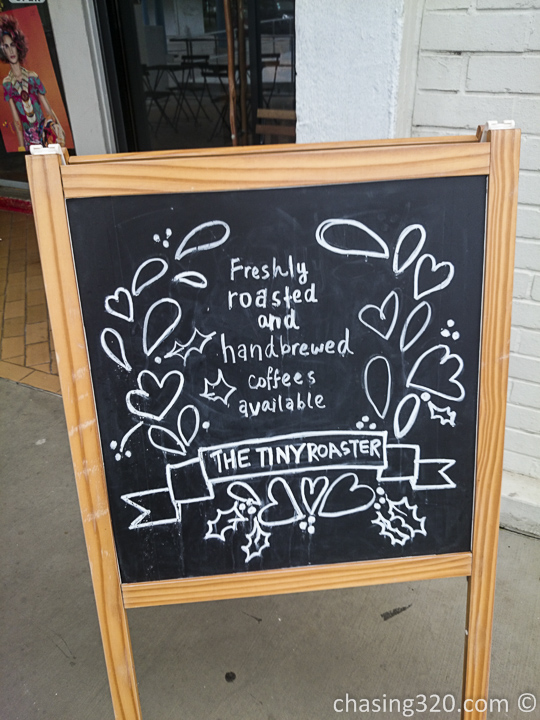 Freshly
roasted
and
handbrewed
coffees
available
THE TINYROASTER
chasing320.com ©